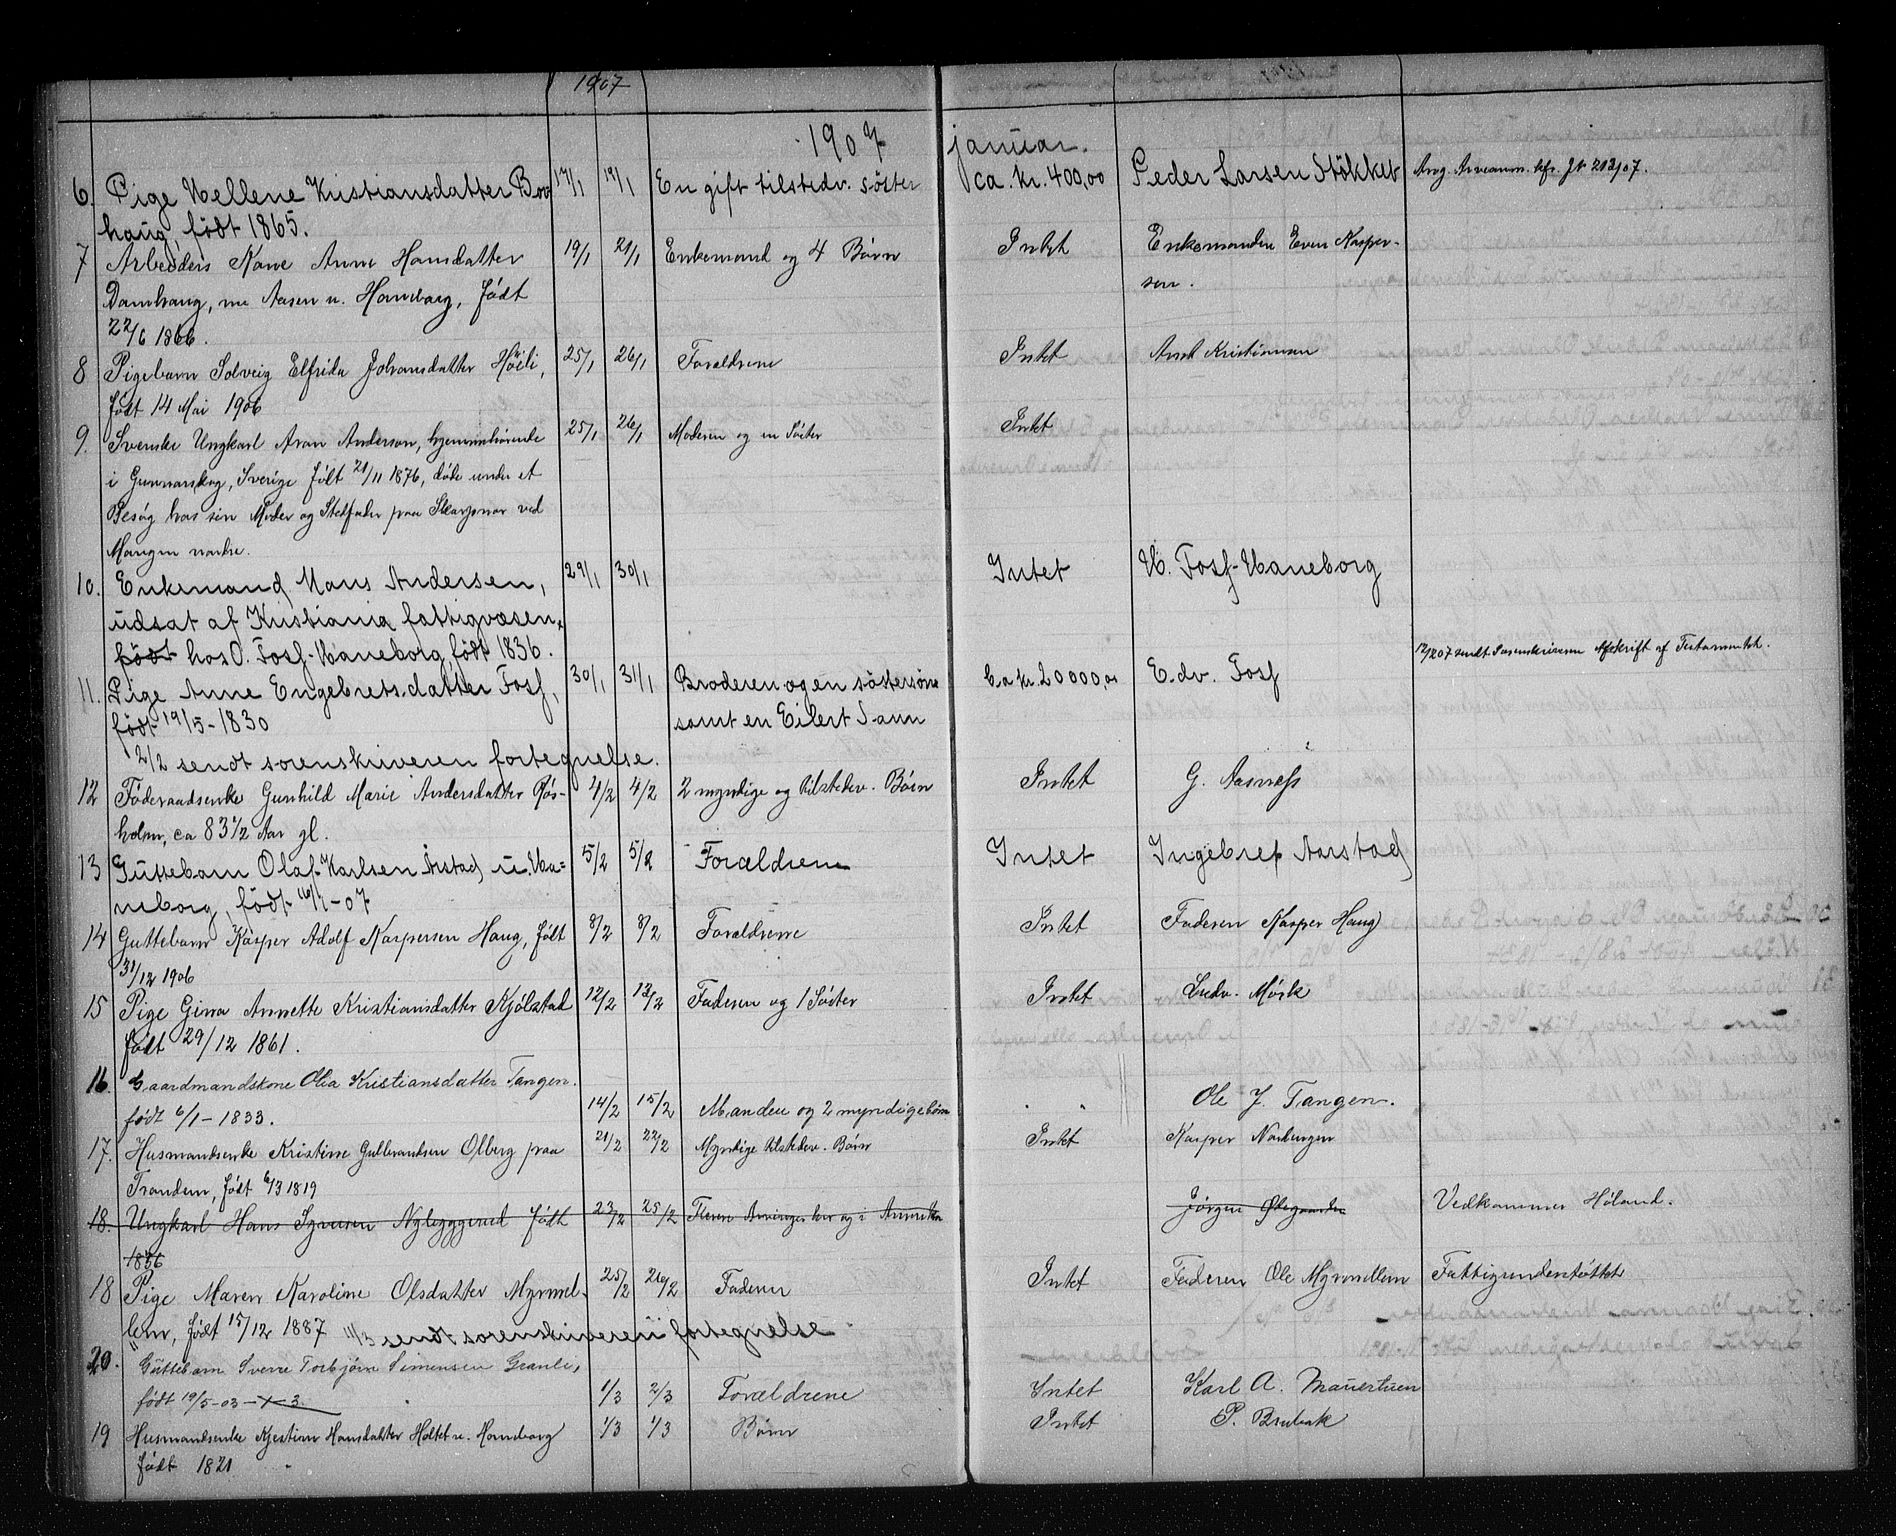 1907
1907 januar.
6. Pige Hellene Kristiansdatter Bov 17/1 19/1 En gift tilstedv. søster ca. kr. 400,00 Peder Larsen Støkket Arvg. Anm. kfr. Jt 213/07.
haug, født 1865.
7 Arbeiders Kone Anne Hansdatter 19/1 21/1 Enkemand og 4 Børn Intet Enkemanden Even Kasper-
Damhaug, Aasen u. Haneborg, født sen.
22/6 1866.
8 Pigebarn Solveig Elfrida Johansdatter Høili, 25/1 26/1 Forældrene Intet Anst Kristiansen
født 14 Mai 1906
9. Svenske Ungkarl Aron Anderson, hjemmehørende 25/1 26/1 Moderen og en Søster Intet
i Gunnarskog, Sverige født 21/11 1876, døde under et
Besøg hos sin Moder og Stedfader paa Skarpsnar ved
Mangen nordre.
10. Enkemand Hans Andersen, 29/1 30/1 Intet H. Fosf-Haneborg
udsat af Kristiania fattigvæsen,
født hos O. Fosf-Haneborg, født 1836.
12/2 07 sendt Sorenskriveren Afskrift af Testamentet.
11. Pige Anne Engebretsdatter Fosf, 30/1 31/1 Broderen og en søstersøn Ca kr. 20000,00 Edv. Fosf
født 19/5-1830 samt en Eilert Sann
12/2 sendt sorenskriveren fortegnelse.
12 Føderaadsenke Gunhild Marie Andersdatter Røs- 4/2 4/2 2 myndige og tilstedev. Børn Intet G. Aasness
holm, ca 83 1/2 Aar gl.
13 Guttebarn Olaf Karlsen Årstad u. Ha= 5/2 5/2 Forældrene Intet Ingebret Aarstad
neborg, født 16/1-07
14 Guttebarn Kasper Adolf Kaspersen Haug, født 8/2 8/2 Forældrene Intet Faderen Kasper Haug
31/12 1906
15 Pige Gina Annette Kristiansdatter Kjølstad 12/2 13/2 Faderen og 1 Søster Intet Ludv. Mørk
født 29/12 1861.
16. Gaardmandskone Olia Kristiansdatter Tangen.
født 6/1-1833. 14/2 15/2 Manden og 2 myndige børn " " Ole J. Tangen.
17. Husmandsenke Kristine Gulbrandsen Olberg paa 21/2 22/2 Myndige tilstedev. Børn Intet Kasper Norbergen
Trandem, født 6/3 1819
18. Ungkarl Hans Syversen Nyleggerud født 23/2 25/2 Flere Arvinger her og i Amerika Jørgen Østegaarden Vedkommer Høland.
1836
18 Pige Maren Karoline Olsdatter Myrmel- 25/2 26/2 Faderen Intet Faderen Ole Myrmellem Fattigunderstøttet
lem, født 15/12 1887 11/3 sendt sorenskriveren fortegnelse
20. Guttebarn Sverre Torbjørn Simensen Granli,
født 19/5-03 - 1/3 2/3 Forældrene Intet Karl A. Mauertuen
19 Husmandsenke Kjestine Hansdatter Holtet u. Haneborg 1/3 1/3 Børn Intet P. Brubak
født 1821